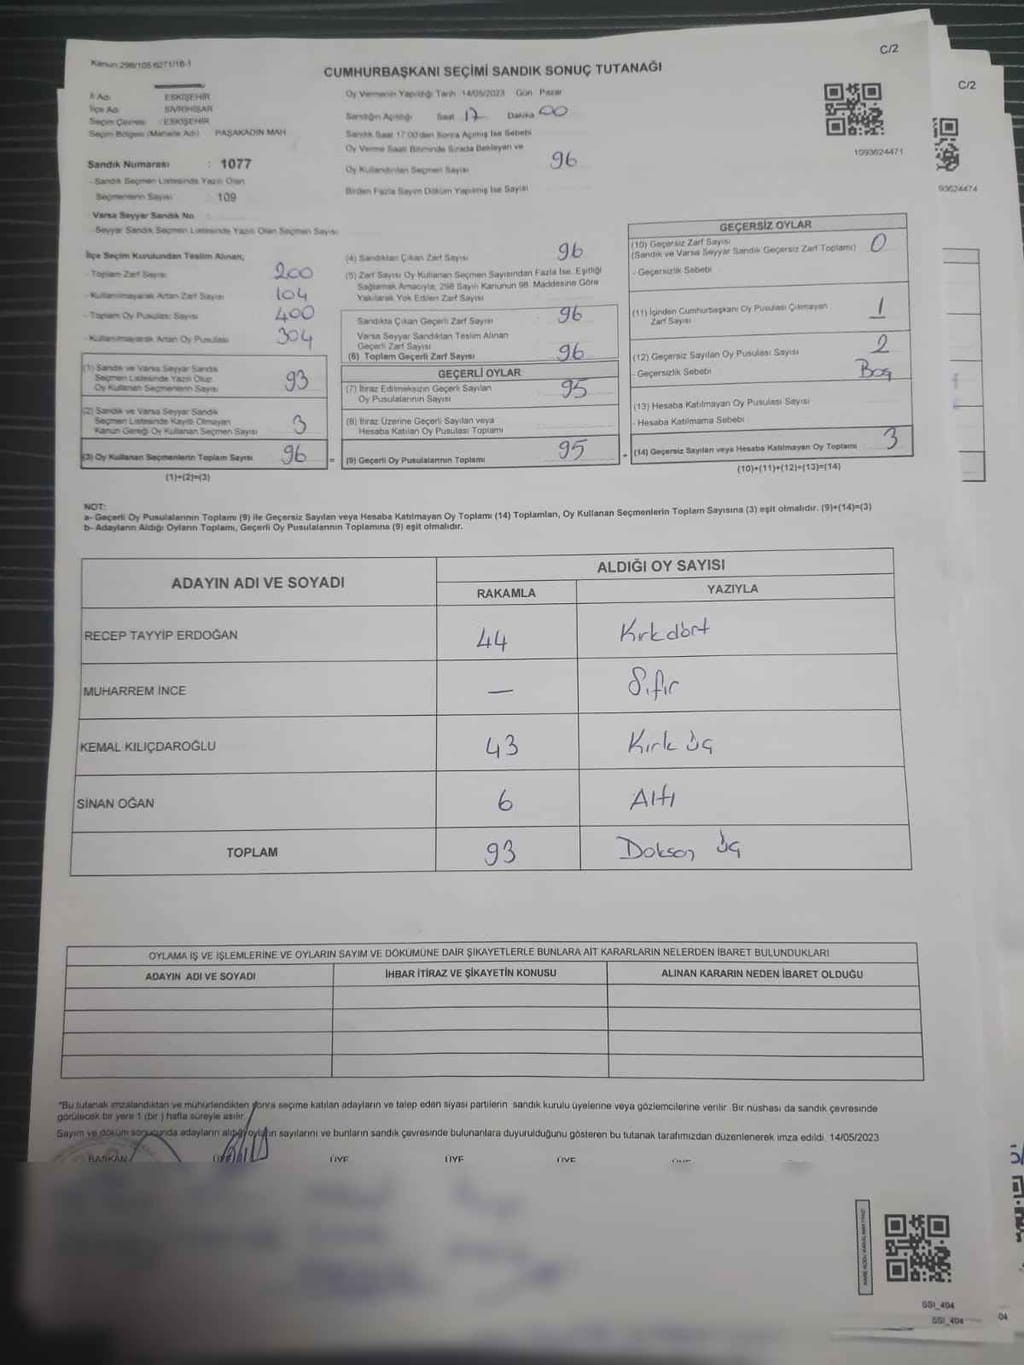 C/2
Kanun:298/105-6271/16-1
CUMHURBAŞKANI SEÇİMİ SANDIK SONUÇ TUTANAĞI
İl Adı : ESKİŞEHİR
İlçe Adı : SİVRİHİSAR
Seçim Çevresi : ESKİŞEHİR
Seçim Bölgesi (Mahalle Adı) PAŞAKADIN MAH
Sandık Numarası : 1077
- Sandık Seçmen Listesinde Yazılı Olan
Seçmenlerin Sayısı 109
Varsa Seyyar Sandık No
- Seyyar Sandık Seçmen Listesinde Yazılı Olan Seçmen Sayısı:
Oy Vermenin Yapıldığı Tarih 14/05/2023 Gün Pazar
Sandığın Açıldığı Saat 17 Dakika 00
Sandık Saat 17:00'den Sonra Açılmış İse Sebebi
Oy Verme Saati Bitiminde Sırada Bekleyen ve
Oy Kullandırılan Seçmen Sayısı 96
Birden Fazla Sayım Döküm Yapılmış İse Sayısı
1093624471
C/2
93624474
İlçe Seçim Kurulundan Teslim Alınan;
- Toplam Zarf Sayısı 200
- Kullanılmayarak Artan Zarf Sayısı 104
- Toplam Oy Pusulası Sayısı 400
- Kullanılmayarak Artan Oy Pusulası 304
(1) Sandık ve Varsa Seyyar Sandık
Seçmen Listesinde Yazılı Olup
Oy Kullanan Seçmenlerin Sayısı 93
(2) Sandık ve Varsa Seyyar Sandık
Seçmen Listesinde Kayıtlı Olmayan
Kanun Gereği Oy Kullanan Seçmen Sayısı 3
(3) Oy Kullanan Seçmenlerin Toplam Sayısı 96
(1)+(2)=(3)
(4) Sandıktan Çıkan Zarf Sayısı 96
(5) Zarf Sayısı Oy Kullanan Seçmen Sayısından Fazla İse, Eşitliği
Sağlamak Amacıyla, 298 Sayılı Kanunun 98. Maddesine Göre
Yakılarak Yok Edilen Zarf Sayısı
Sandıkta Çıkan Geçerli Zarf Sayısı 96
Varsa Seyyar Sandıktan Teslim Alınan
Geçerli Zarf Sayısı
(6) Toplam Geçerli Zarf Sayısı 96
GEÇERLİ OYLAR
(7) İtiraz Edilmeksizin Geçerli Sayılan
Oy Pusulalarının Sayısı 95
(8) İtiraz Üzerine Geçerli Sayılan veya
Hesaba Katılan Oy Pusulası Toplamı
= (9) Geçerli Oy Pusulalarının Toplamı 95
GEÇERSİZ OYLAR
(10) Geçersiz Zarf Sayısı
(Sandık ve Varsa Seyyar Sandık Geçersiz Zarf Toplamı) 0
- Geçersizlik Sebebi
(11) İçinden Cumhurbaşkanı Oy Pusulası Çıkmayan
Zarf Sayısı 1
(12) Geçersiz Sayılan Oy Pusulası Sayısı 2
- Geçersizlik Sebebi Boş
(13) Hesaba Katılmayan Oy Pusulası Sayısı
- Hesaba Katılmama Sebebi
+ (14) Geçersiz Sayılan veya Hesaba Katılmayan Oy Toplamı 3
(10)+(11)+(12)+(13)=(14)
NOT:
a- Geçerli Oy Pusulalarının Toplamı (9) ile Geçersiz Sayılan veya Hesaba Katılmayan Oy Toplamı (14) Toplamları, Oy Kullanan Seçmenlerin Toplam Sayısına (3) eşit olmalıdır. (9)+(14)=(3)
b- Adayların Aldığı Oyların Toplamı, Geçerli Oy Pusulalarının Toplamına (9) eşit olmalıdır.
ADAYIN ADI VE SOYADI
ALDIĞI OY SAYISI
RAKAMLA YAZIYLA
RECEP TAYYİP ERDOĞAN 44 Kırkdört
MUHARREM İNCE — Sıfır
KEMAL KILIÇDAROĞLU 43 Kırk üç
SİNAN OĞAN 6 Altı
TOPLAM 93 Doksan üç
OYLAMA İŞ VE İŞLEMLERİNE VE OYLARIN SAYIM VE DÖKÜMÜNE DAİR ŞİKAYETLERLE BUNLARA AİT KARARLARIN NELERDEN İBARET BULUNDUKLARI
ADAYIN ADI VE SOYADI İHBAR İTİRAZ VE ŞİKAYETİN KONUSU ALINAN KARARIN NEDEN İBARET OLDUĞU
"Bu tutanak imzalandıktan ve mühürlendikten sonra seçime katılan adayların ve talep eden siyasi partilerin sandık kurulu üyelerine veya gözlemcilerine verilir. Bir nüshası da sandık çevresinde
görülecek bir yere 1 (bir) hafta süreyle asılır.
Sayım ve döküm sonucunda adayların aldığı oyların sayılarını ve bunların sandık çevresinde bulunanlara duyurulduğunu gösteren bu tutanak tarafımızdan düzenlenerek imza edildi. 14/05/2023
BAŞKAN ÜYE ÜYE ÜYE
SSI_404
SSI_404
04